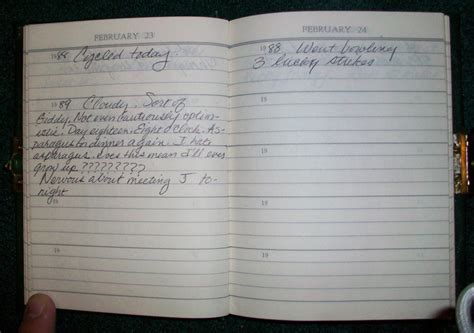 FEBRUARY 23
1988 Cycled today
19
1989 Cloudy. Sort of
giddy. Not even cautiously optim-
istic. Day eighteen. Eight o'clock. As-
paragus for dinner again. I hate
asparagus. Does this mean I'll ever
grow up ?????????
Nervous about meeting J. to-
night
19
19
FEBRUARY 24
1988 Went bowling
3 lucky strikes
19
19
19
19